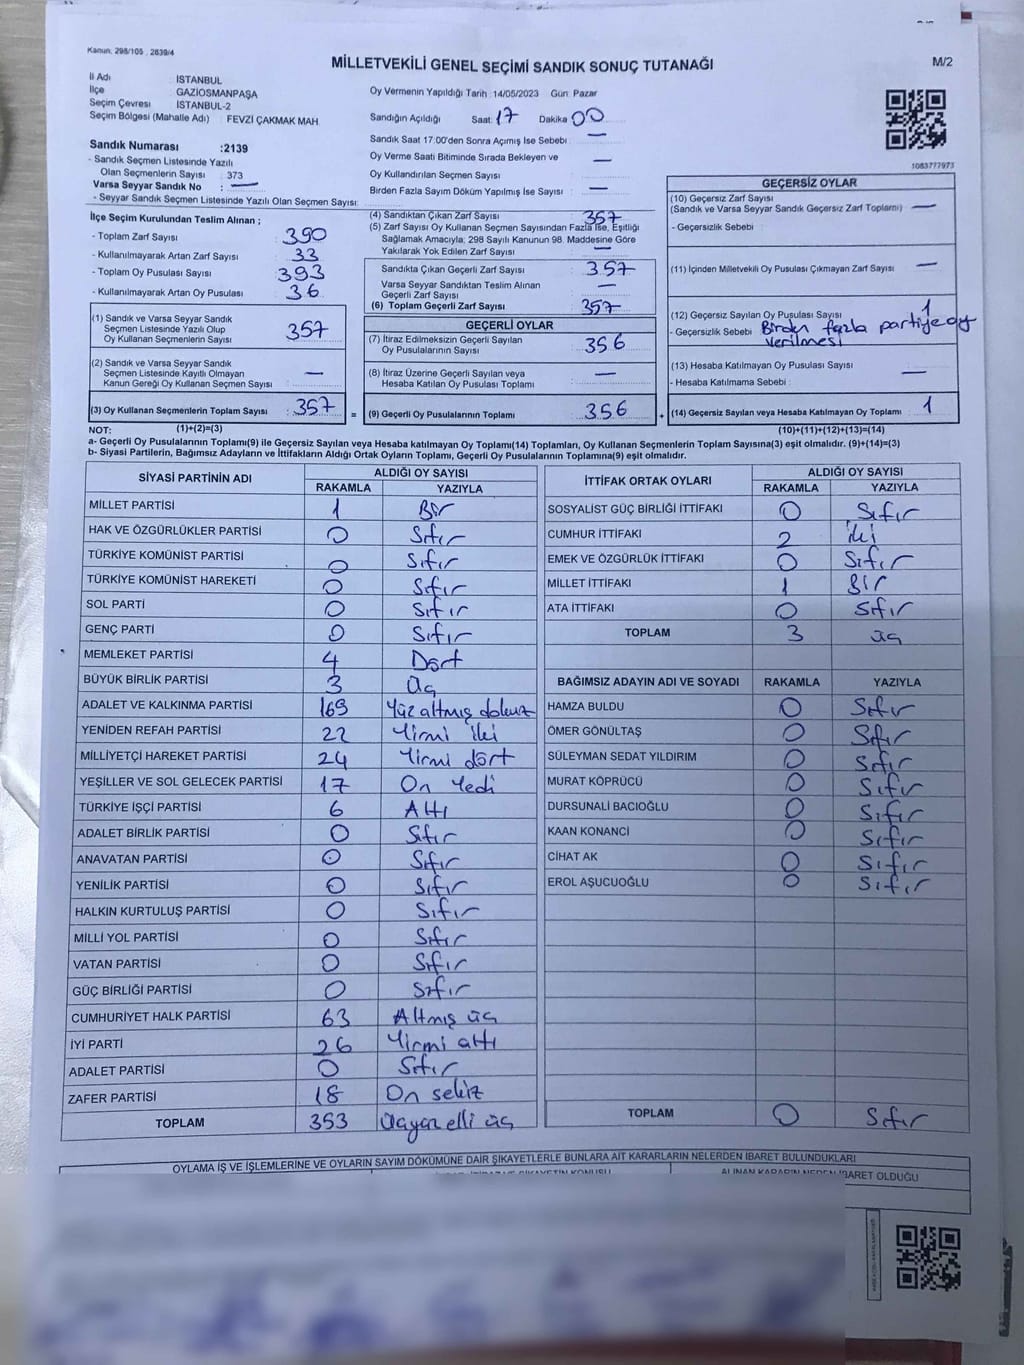 Kanun: 298/105 , 2839/4
MİLLETVEKİLİ GENEL SEÇİMİ SANDIK SONUÇ TUTANAĞI
M/2
İl Adı İSTANBUL
İlçe GAZİOSMANPAŞA
Seçim Çevresi İSTANBUL-2
Seçim Bölgesi (Mahalle Adı) FEVZİ ÇAKMAK MAH.
Oy Vermenin Yapıldığı Tarih :14/05/2023 Gün: Pazar
Sandığın Açıldığı Saat: 17 Dakika 00
Sandık Saat 17:00'den Sonra Açımış İse Sebebi : —
Oy Verme Saati Bitiminde Sırada Bekleyen ve
Oy Kullandırılan Seçmen Sayısı : —
Birden Fazla Sayım Döküm Yapılmış İse Sayısı : —
1083777973
Sandık Numarası :2139
- Sandık Seçmen Listesinde Yazılı
Olan Seçmenlerin Sayısı : 373
Varsa Seyyar Sandık No : —
- Seyyar Sandık Seçmen Listesinde Yazılı Olan Seçmen Sayısı:
İlçe Seçim Kurulundan Teslim Alınan ;
- Toplam Zarf Sayısı : 390
- Kullanılmayarak Artan Zarf Sayısı : 33
- Toplam Oy Pusulası Sayısı : 393
- Kullanılmayarak Artan Oy Pusulası : 36
(1) Sandık ve Varsa Seyyar Sandık
Seçmen Listesinde Yazılı Olup
Oy Kullanan Seçmenlerin Sayısı : 357
(2) Sandık ve Varsa Seyyar Sandık
Seçmen Listesinde Kayıtlı Olmayan
Kanun Gereği Oy Kullanan Seçmen Sayısı : —
(3) Oy Kullanan Seçmenlerin Toplam Sayısı : 357
(4) Sandıktan Çıkan Zarf Sayısı : 357
(5) Zarf Sayısı Oy Kullanan Seçmen Sayısından Fazla İse, Eşitliği
Sağlamak Amacıyla; 298 Sayılı Kanunun 98. Maddesine Göre
Yakılarak Yok Edilen Zarf Sayısı : —
Sandıkta Çıkan Geçerli Zarf Sayısı : 357
Varsa Seyyar Sandıktan Teslim Alınan
Geçerli Zarf Sayısı : —
(6) Toplam Geçerli Zarf Sayısı : 357
GEÇERLİ OYLAR
(7) İtiraz Edilmeksizin Geçerli Sayılan
Oy Pusulalarının Sayısı : 356
(8) İtiraz Üzerine Geçerli Sayılan veya
Hesaba Katılan Oy Pusulası Toplamı : —
= (9) Geçerli Oy Pusulalarının Toplamı : 356
GEÇERSİZ OYLAR
(10) Geçersiz Zarf Sayısı
(Sandık ve Varsa Seyyar Sandık Geçersiz Zarf Toplamı) : —
- Geçersizlik Sebebi :
(11) İçinden Milletvekili Oy Pusulası Çıkmayan Zarf Sayısı : —
(12) Geçersiz Sayılan Oy Pusulası Sayısı : 1
- Geçersizlik Sebebi : Birden fazla partiye oy
verilmesi
(13) Hesaba Katılmayan Oy Pusulası Sayısı : —
- Hesaba Katılmama Sebebi :
+ (14) Geçersiz Sayılan veya Hesaba Katılmayan Oy Toplamı : 1
NOT: (1)+(2)=(3) (10)+(11)+(12)+(13)=(14)
a- Geçerli Oy Pusulalarının Toplamı(9) ile Geçersiz Sayılan veya Hesaba katılmayan Oy Toplamı(14) Toplamları, Oy Kullanan Seçmenlerin Toplam Sayısına(3) eşit olmalıdır. (9)+(14)=(3)
b- Siyasi Partilerin, Bağımsız Adayların ve İttifakların Aldığı Ortak Oyların Toplamı, Geçerli Oy Pusulalarının Toplamına(9) eşit olmalıdır.
SİYASİ PARTİNİN ADI ALDIĞI OY SAYISI
RAKAMLA YAZIYLA
MİLLET PARTİSİ 1 Bir
HAK VE ÖZGÜRLÜKLER PARTİSİ 0 Sıfır
TÜRKİYE KOMÜNİST PARTİSİ 0 Sıfır
TÜRKİYE KOMÜNİST HAREKETİ 0 Sıfır
SOL PARTİ 0 Sıfır
GENÇ PARTİ 0 Sıfır
MEMLEKET PARTİSİ 4 Dört
BÜYÜK BİRLİK PARTİSİ 3 Üç
ADALET VE KALKINMA PARTİSİ 169 Yüz altmış dokuz
YENİDEN REFAH PARTİSİ 22 Yirmi iki
MİLLİYETÇİ HAREKET PARTİSİ 24 Yirmi dört
YEŞİLLER VE SOL GELECEK PARTİSİ 17 On Yedi
TÜRKİYE İŞÇİ PARTİSİ 6 Altı
ADALET BİRLİK PARTİSİ 0 Sıfır
ANAVATAN PARTİSİ 0 Sıfır
YENİLİK PARTİSİ 0 Sıfır
HALKIN KURTULUŞ PARTİSİ 0 Sıfır
MİLLİ YOL PARTİSİ 0 Sıfır
VATAN PARTİSİ 0 Sıfır
GÜÇ BİRLİĞİ PARTİSİ 0 Sıfır
CUMHURİYET HALK PARTİSİ 63 Altmış üç
İYİ PARTİ 26 Yirmi altı
ADALET PARTİSİ 0 Sıfır
ZAFER PARTİSİ 18 On sekiz
TOPLAM 353 Üçyüz elli üç
İTTİFAK ORTAK OYLARI ALDIĞI OY SAYISI
RAKAMLA YAZIYLA
SOSYALİST GÜÇ BİRLİĞİ İTTİFAKI 0 Sıfır
CUMHUR İTTİFAKI 2 İki
EMEK VE ÖZGÜRLÜK İTTİFAKI 0 Sıfır
MİLLET İTTİFAKI 1 Bir
ATA İTTİFAKI 0 Sıfır
TOPLAM 3 üç
BAĞIMSIZ ADAYIN ADI VE SOYADI RAKAMLA YAZIYLA
HAMZA BULDU 0 Sıfır
ÖMER GÖNÜLTAŞ 0 Sıfır
SÜLEYMAN SEDAT YILDIRIM 0 Sıfır
MURAT KÖPRÜCÜ 0 Sıfır
DURSUNALİ BACIOĞLU 0 Sıfır
KAAN KONANCİ 0 Sıfır
CİHAT AK 0 Sıfır
EROL AŞUCUOĞLU 0 Sıfır
TOPLAM 0 Sıfır
OYLAMA İŞ VE İŞLEMLERİNE VE OYLARIN SAYIM DÖKÜMÜNE DAİR ŞİKAYETLERLE BUNLARA AİT KARARLARIN NELERDEN İBARET BULUNDUKLARI
ALINAN KARARIN NEDEN İBARET OLDUĞU